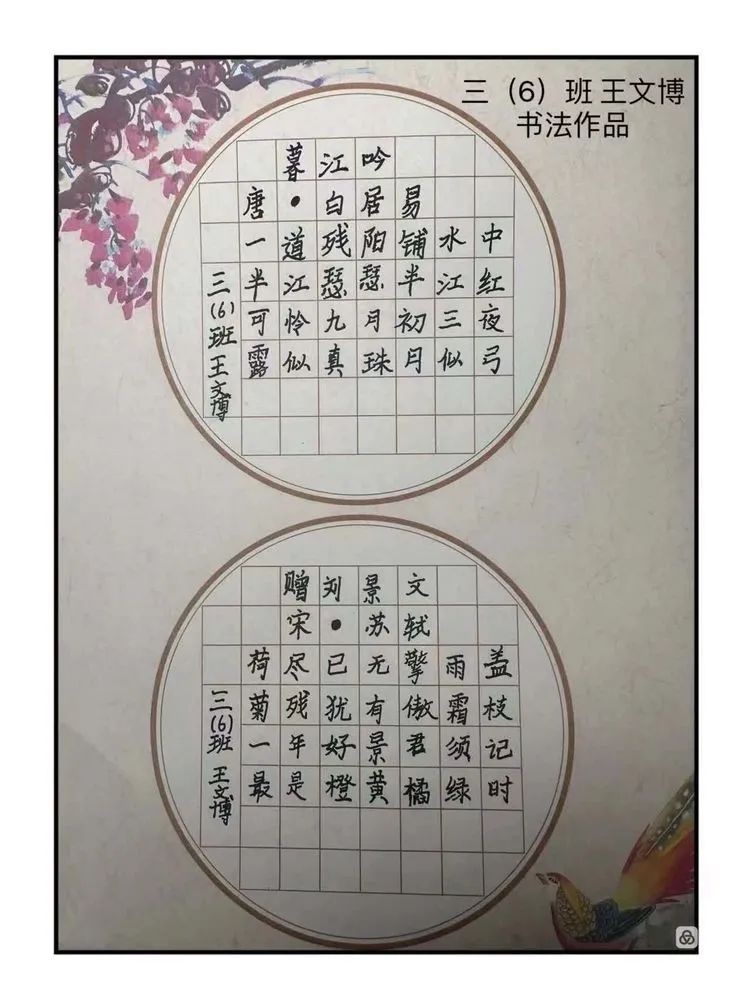 三（6）班 王文博
书法作品
暮江吟
唐•白居易
一道残阳铺水中
半江瑟瑟半江红
可怜九月初三夜
露似真珠月似弓
三(6)班王文博
赠刘景文
宋•苏轼
荷尽已无擎雨盖
菊残犹有傲霜枝
一年好景君须记
最是橙黄橘绿时
三(6)班 王文博